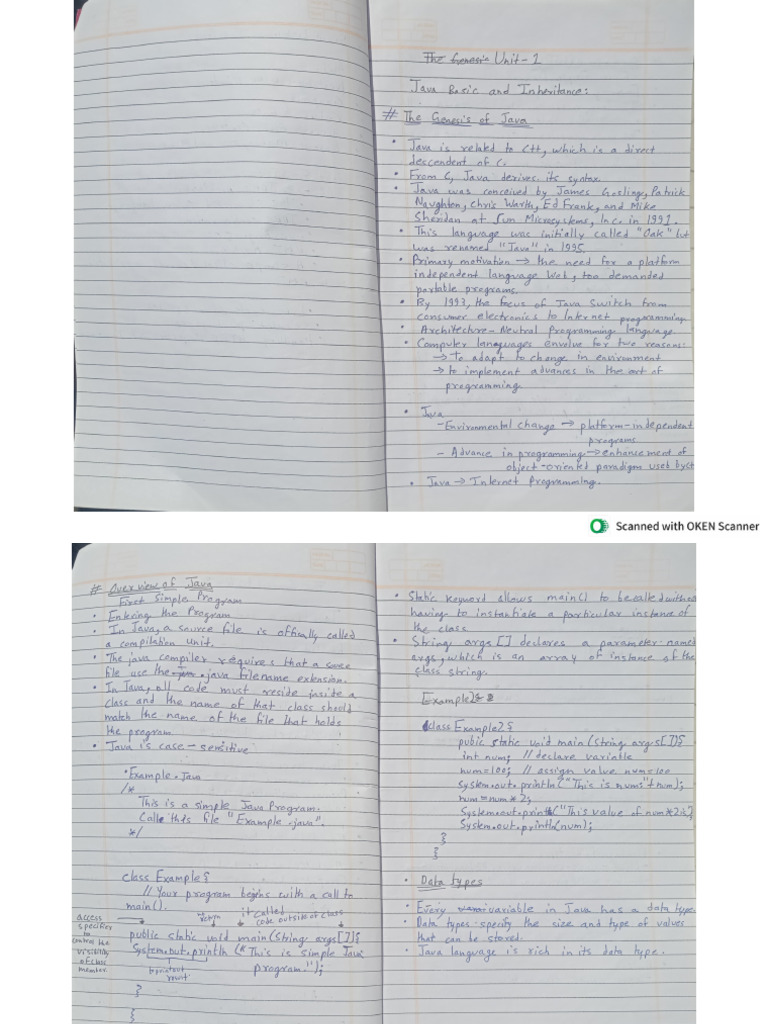 The Genesis Unit-1
Java Basic and Inheritance:
# The Genesis of Java
• Java is related to C++, which is a direct
descendent of C.
• From C, Java derives its syntax.
• Java was conceived by James Gosling, Patrick
Naughton, Chris Warth, Ed Frank, and Mike
Sheridan at Sun Microsystems, Inc. in 1991.
• This language was initially called "Oak" but
was renamed "Java" in 1995.
• Primary motivation → the need for a platform
independent language Web, too demanded
portable programs.
• By 1993, the focus of Java Switch from
consumer electronics to Internet programming.
• Architecture-Neutral Programming language.
• Computer languages envolve for two reasons:
→ to adapt to change in environment
→ to implement advances in the art of
programming.
• Java
- Environmental change → platform-independent
programs
- Advance in programming → enhancement of
object-oriented paradigm used by
• Java → Internet Programming.
Scanned with OKEN Scanner
# Overview of Java
First Simple Program
• Entering the Program
• In Java, a source file is called
a compilation unit.
• The java compiler requires that a
file use the .java filename extension.
• In Java, all code must reside inside a
class and the name of that class should
match the name of the file that holds
the program
• Java is case-sensitive
• Example.Java
/*
This is a simple Java Program.
this file "Example.java".
*/
class Example {
// Your program begins with a call to
main().
access
specifier
to
control the
visibility
of class
member.
return
it called
code outside of class
public static void main(String args[]){
System.out.println ("This is simple Java
program.");
}
}
• Static keyword allows main() to be called without
having to instantiate a particular instance of
the class
• String args [] declares a parameter named
args, which is an array of instance of the
class string.
Example2
class Example2 {
public static void main (String args[]){
int num; // declare variable
num=100; // assign value num=100
System.out.println("This is num:"+num);
num=num*2;
System.out.print("This value of num*2
System.out.println(num);
}
}
• Data types
• Every variable in Java has a data type.
• Data types specify the size and type of values
that can be stored.
• Java language is rich in its data type.